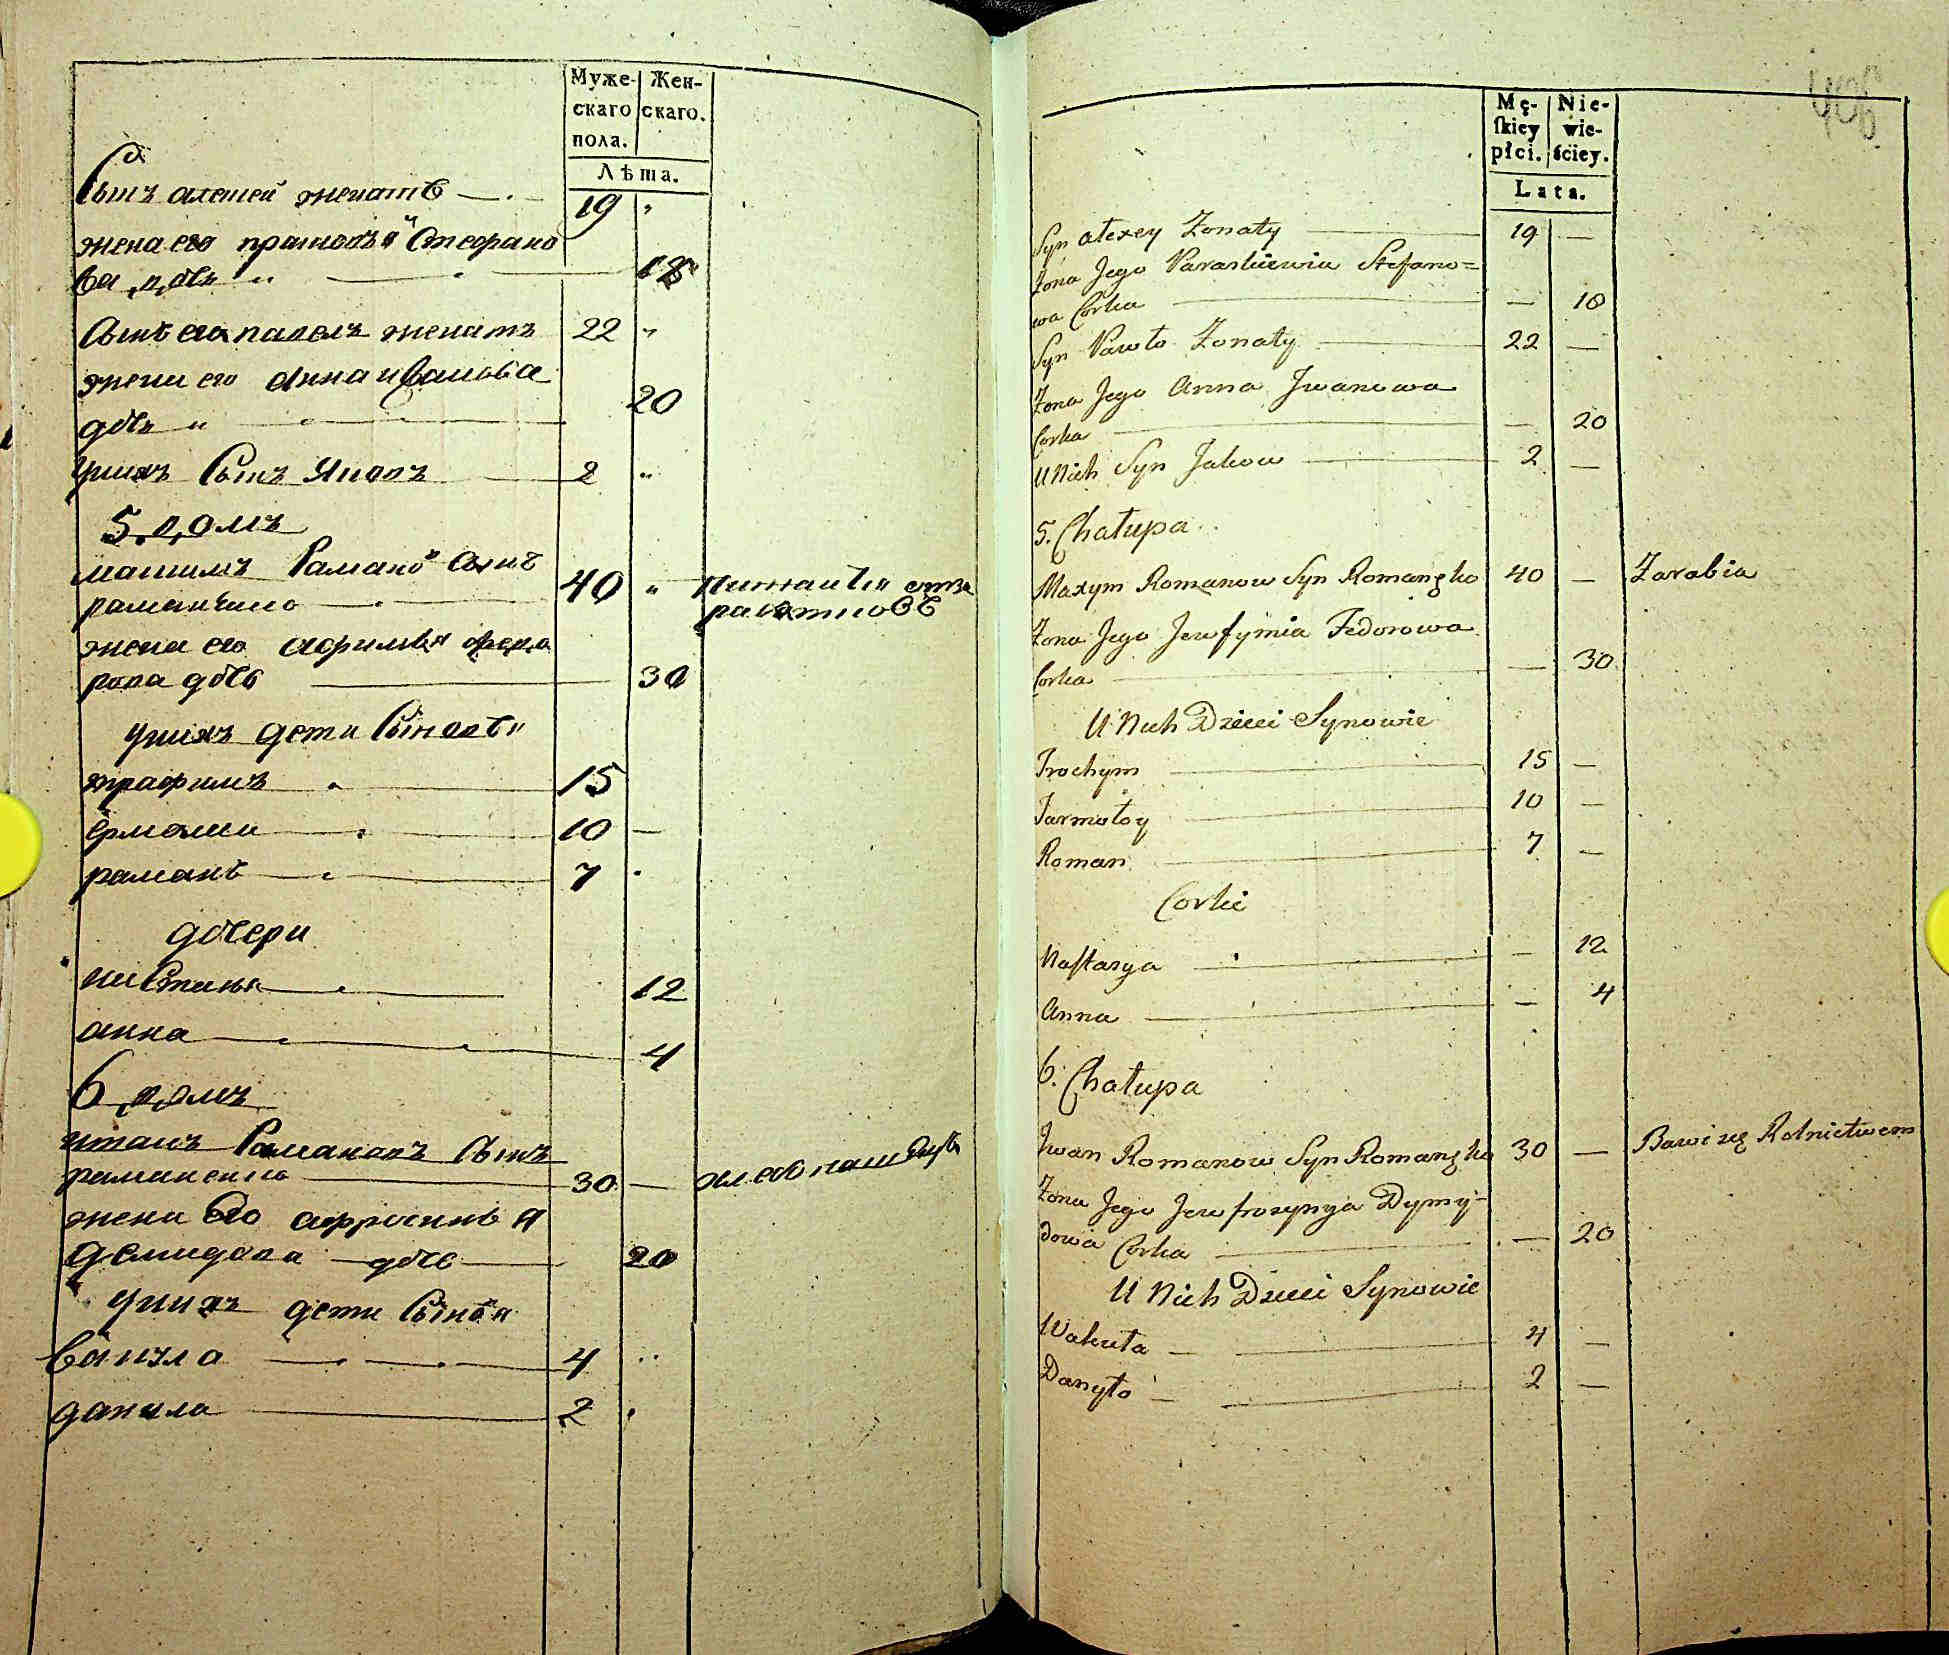 Муже-
скаго
пола.
Жен-
скаго.
Лѣта.
Сынъ алексей женатъ 19 "
жена его Стефано
ва дочь " 18
Сынъ его павелъ женатъ 22 "
жена его Анна иванова 20
дочь "
унихъ Сынъ Яковъ 2 "
5. домъ
максимъ Раманов Сынъ 40 "
раманченко
жена его афимья федо
рова дочь 30
унихъ дети Сыновья
трафимъ 15
ермолай 10 —
раманъ 7
дочери
настасья 12
анна 4
6 домъ
Рамановъ Сынъ
раманченко 30 —
жена его афросинья
демидова дочь 20
унихъ дети Сыновья
4 "
данила 2
406
Mę-
ſkiey
płci.
Nie-
wie-
ściey.
Lata.
Syn Alexey Żonaty 19 —
Żona Jego Paraskiewia Stefano=
wa Corka — 18
Syn Pawło Żonaty 22 —
Żona Jego Anna Jwanowa
Corka — 20
U Nich Syn Jakow 2 —
5. Chałupa
Maxym Romanow Syn Romanzko 40 — Zarabia
Żona Jego Jewfymia Fedorowa
Corka — 30
U Nich Dzieci Synowie
Trochym 15 —
Jarmołoy 10 —
Roman 7 —
Corki
Naſtasya — 12
Anna — 4
6. Chałupa
Jwan Romanow Syn Romanzko 30 — Bawi się Rolnictwem
Żona Jego Jewfrozynya Dymy-
dowa Corka — 20
U Nich Dzieci Synowie
Wakuła 4 —
Danyło 2 —